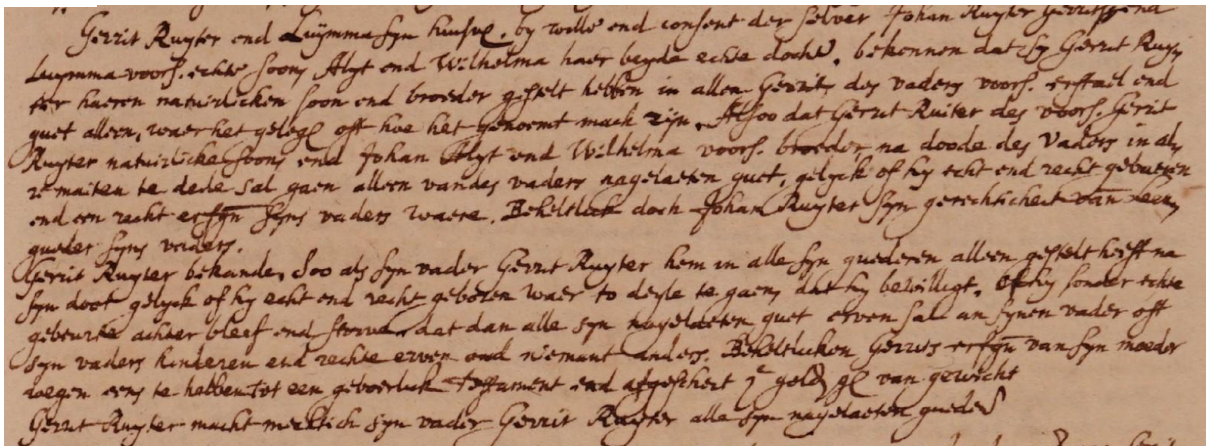 Gerrit Ruyter end Luÿmma syn huisvr. by wille end consent der selver Johan Ruyter Gerrits end
Luymma voors. echte soon, Alyt end Wilhelma haer beyde echte dochter, bekennen dat sy Gerrit Ruy
ter haeren natuirlicken soon end broeder gestelt hebben in allen Gerrits des vaders voors. erffael end
guet alleen, waer het gelegen oft hoe het genoemt mach zijn. Alsoo dat Gerrit Ruiter des voors. Gerit
Ruyter natuirlicke soon, end Johan Alyt end Wilhelma voors. broeder na doode des vaders in als
te dele sal gaen alleen van des vaders nagelaeten guet, gelyck of hy echt end recht gebueren
end een recht erfgen syns vaders waere. Beheltlick doch Johan Ruyter syn gerechticheit van leen
gueder syns vaders.
Gerrit Ruyter bekande, soo als syn vader Gerrit Ruyter hem in alle syn guederen alleen gestelt heeft na
syn doot gelyck of hy echt end recht geboren waer to deyle te gaen, dat hy bewilligt, of hy sonder echte
gebeurte achter bleef end storve, dat dan alle syn nagelaeten guet erven sal an synen vader oft
syn vaders kinderen end rechte erven end niemant anders. Beheltlicken Gerrits erfgen van syn moeder
wegen eens te hebben tot een geboerlick Testament end afgescheit gold gl van gewicht
Gerrit Ruyter macht mechtich syn vader Gerrit Ruyter alle syn nagelaeten gueder